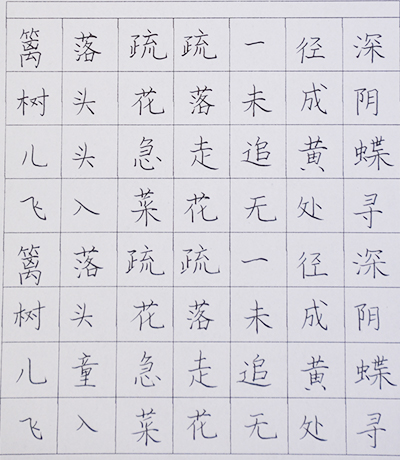 篱落疏疏一径深
树头花落未成阴
儿头急走追黄蝶
飞入菜花无处寻
篱落疏疏一径深
树头花落未成阴
儿童急走追黄蝶
飞入菜花无处寻